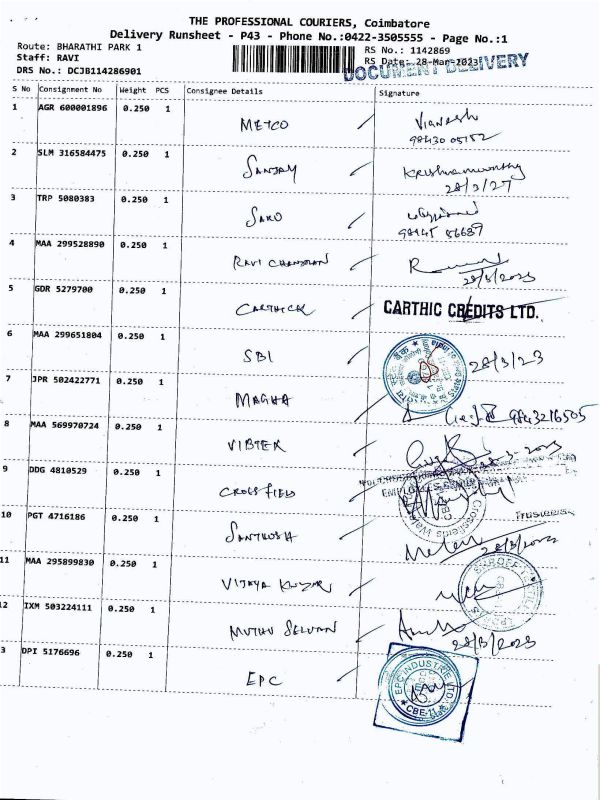 THE PROFESSIONAL COURIERS, Coimbatore
Delivery Runsheet - P43 - Phone No.:0422-3505555 - Page No.:1
Route: BHARATHI PARK 1
RS No.: 1142869
Staff: RAVI
RS Date: 28-Mar-2023
DRS No.: DCJB114286901
DOCUMENT DELIVERY
S No Consignment No Weight PCS Consignee Details Signature
1 AGR 600001896 0.250 1 METCO Vignesh
98430 05152
2 SLM 316584475 0.250 1 SANJAY Krishnamoorthy
28/3/27
3 TRP 5080383 0.250 1 SAKO
98145 86687
4 MAA 299528890 0.250 1 RAVI CHANDRAN
28/3/2023
5 GDR 5279700 0.250 1 CARTHICK CARTHIC CREDITS LTD.
6 MAA 299651804 0.250 1 SBI 28/3/23
7 JPR 502422771 0.250 1 MAGHA 9843216505
8 MAA 569970724 0.250 1 VIBTER
9 DDG 4810529 0.250 1 CROSSFIELD
Trustees
10 PGT 4716186 0.250 1 SANTHOSH
28/3/2023
11 MAA 295899830 0.250 1 VIJAYA KUMAR
2 IXM 503224111 0.250 1 MUTHU SELVAN
28/3/2023
3 DPI 5176696 0.250 1 EPC EPC INDUSTRIE LTD
CBE-11